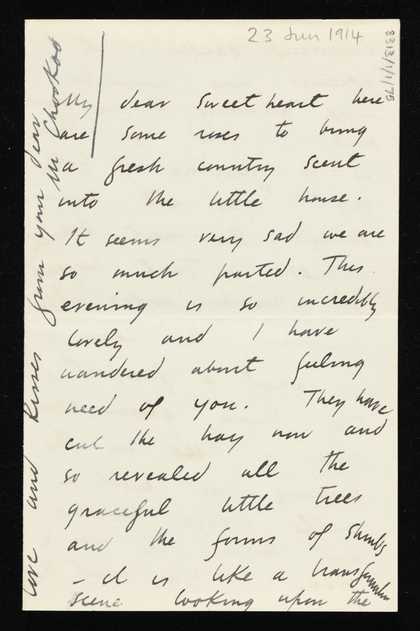 23 Jun 1914
8313/1/1/75
My dear Sweetheart here
are some roses to bring
a fresh country scent
into the little house.
It seems very sad we are
so much parted. This
evening is so incredibly
lovely and I have
wandered about feeling
need of you. They have
cut the hay now and
so revealed all the
graceful little trees
and the forms of shrubs
– it is like a transformation
scene looking upon the
love and kisses from your dear
Mr